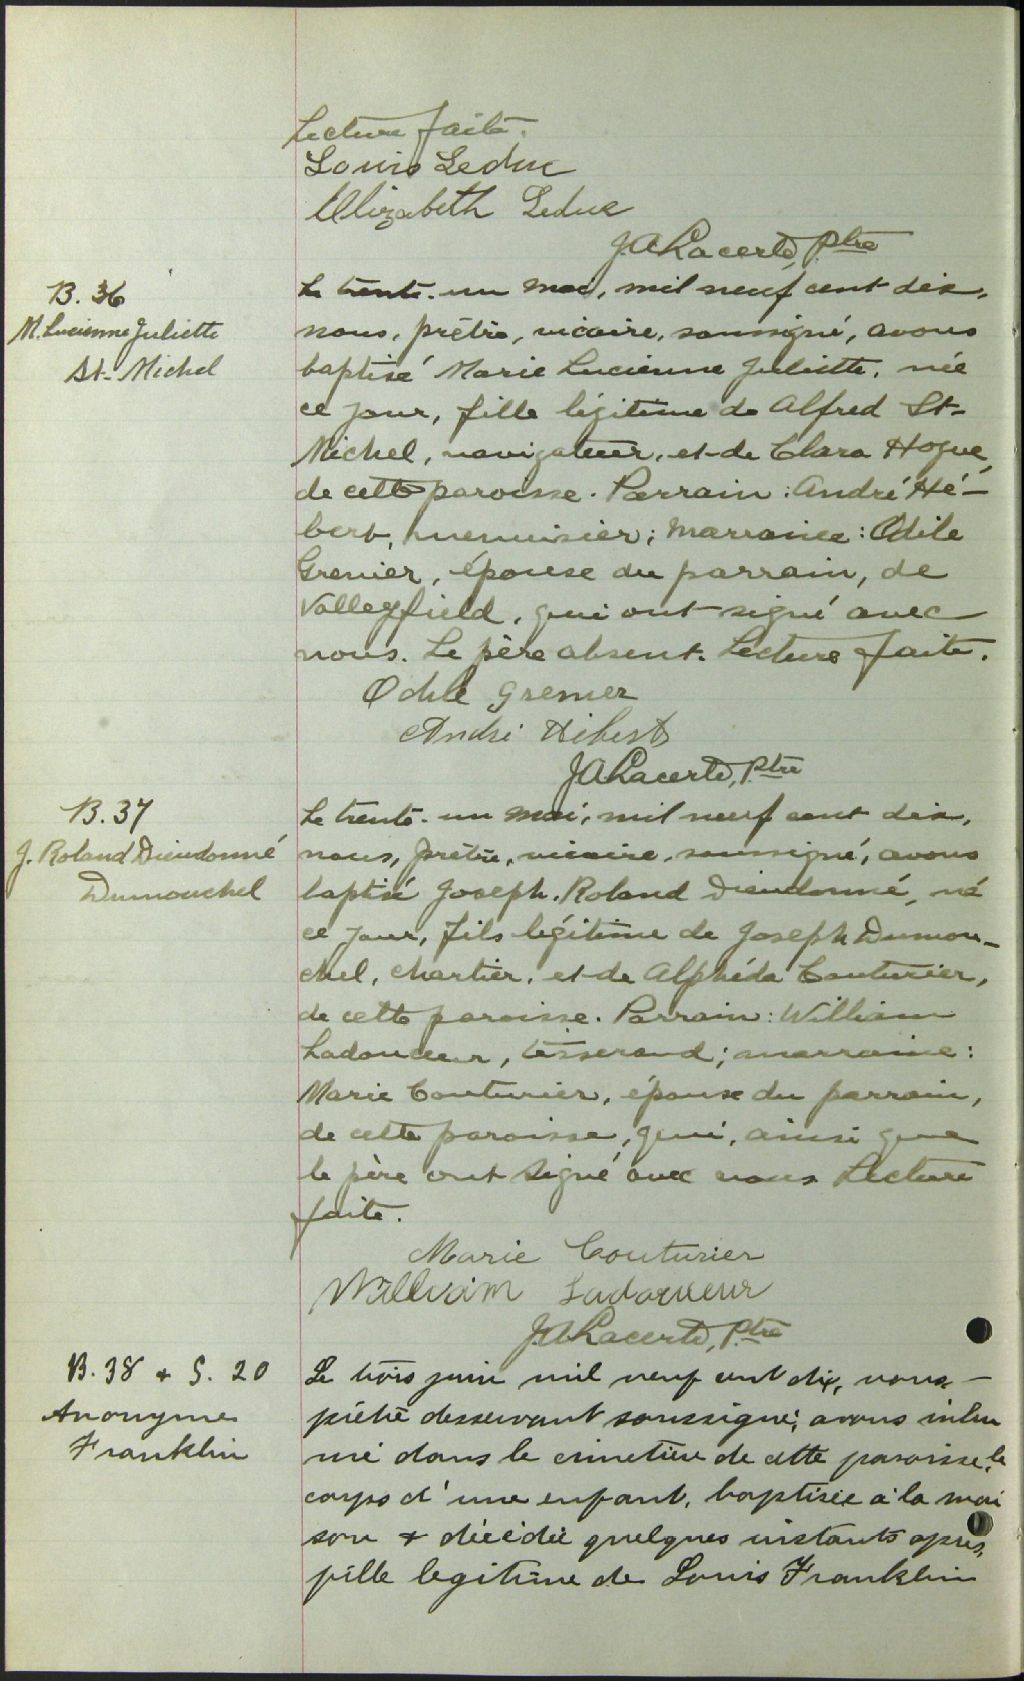 Lecture faite.
Louis Leduc
Elizabeth Leduc
J.A. Lacerte, Ptre
B. 36
M. Lucienne Juliette
St-Michel
Le trente-un mai, mil neuf cent dix,
nous, prêtre, vicaire, soussigné, avons
baptisé Marie Lucienne Juliette, née
ce jour, fille légitime de Alfred St-
Michel, navigateur, et de Clara Hogue,
de cette paroisse. Parrain: André Hé-
bert, menuisier; marraine: Odile
Grenier, épouse du parrain, de
Valleyfield, qui ont signé avec
nous. Le père absent. Lecture faite.
Odile Grenier
André Hébert
J.A. Lacerte, Ptre
B. 37
J. Roland Dieudonné
Dumouchel
Le trente-un mai, mil neuf cent dix,
nous, prêtre, vicaire, soussigné, avons
baptisé Joseph Roland Dieudonné, né
ce jour, fils légitime de Joseph Dumou-
chel, chartier, et de Alphéda Couturier,
de cette paroisse. Parrain: William
Ladouceur, tisserand; marraine:
Marie Couturier, épouse du parrain,
de cette paroisse, qui, ainsi que
le père ont signé avec nous Lecture
faite.
Marie Couturier
William Ladouceur
J.A. Lacerte, Ptre
B. 38 + S. 20
Anonyme
Franklin
Le trois juin mil neuf cent dix, nous -
prêtre desservant soussigné, avons inhu
mé dans le cimetière de cette paroisse, le
corps d'une enfant, baptisée à la mai
son + décédée quelques instants après,
fille legitime de Louis Franklin